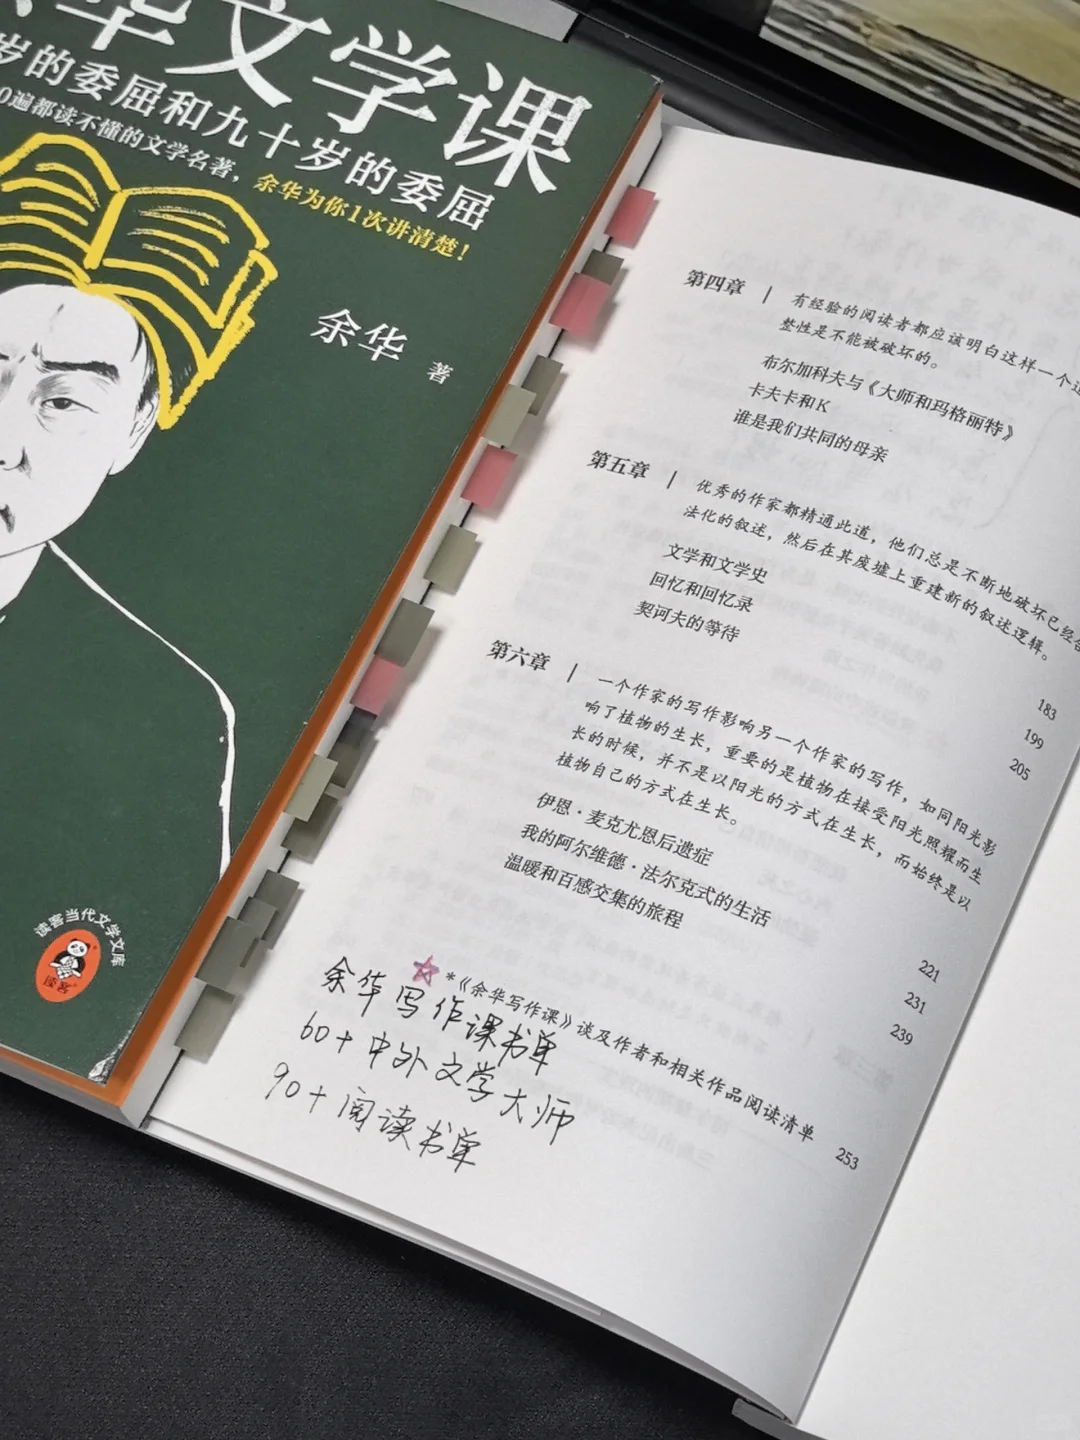 华文学课
岁的委屈和九十岁的委屈
0遍都读不懂的文学名著，余华为你1次讲清楚！
余华 著
读客当代文学文库
读客
第四章
有经验的阅读者都应该明白这样一个
整性是不能被破坏的。
布尔加科夫与《大师和玛格丽特》
卡夫卡和K
谁是我们共同的母亲
第五章
优秀的作家都精通此道，他们总是不断地破坏已经
法化的叙述，然后在其废墟上重建新的叙述逻辑。
文学和文学史 183
回忆和回忆录 199
契诃夫的等待 205
第六章
一个作家的写作影响另一个作家的写作，如同阳光影
响了植物的生长，重要的是植物在接受阳光照耀而生
长的时候，并不是以阳光的方式在生长，而始终是以
植物自己的方式在生长。
伊恩·麦克尤恩后遗症 221
我的阿尔维德·法尔克式的生活 231
温暖和百感交集的旅程 239
*《余华写作课》谈及作者和相关作品阅读清单 253
余华写作课书单
60+中外文学大师
90+阅读书单